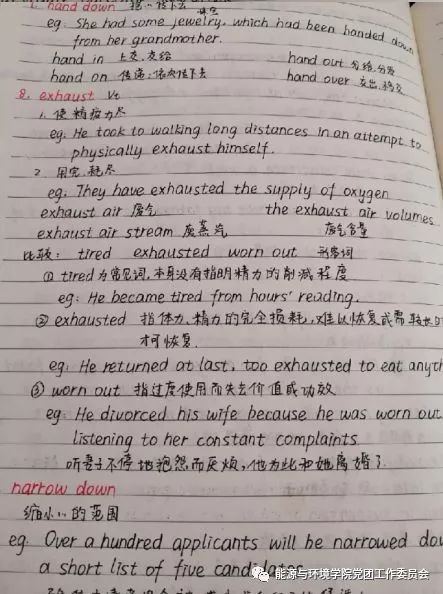 1. hand down 把…传下去
珠宝
eg: She had some jewelry, which had been handed down
from her grandmother.
hand in 上交,交给 hand out 分给,分发
hand on 传递;依次传下去 hand over 交出,移交
2. exhaust vt
1. 使精疲力尽
eg: He took to walking long distances in an attempt to
physically exhaust himself.
2. 用完,耗尽
eg: They have exhausted the supply of oxygen
exhaust air 废气 the exhaust air volumes
exhaust air stream 废蒸汽 废气含量
比较: tired exhausted worn out 形容词
① tired为常见词,本身没有指明精力的削减程度
eg: He became tired from hours' reading.
② exhausted 指体力、精力的完全损耗,难以恢复或需较长
才可恢复.
eg: He returned at last, too exhausted to eat anyth
③ worn out 指过度使用而失去价值或功效
eg: He divorced his wife because he was worn out
listening to her constant complaints
听妻子不停地抱怨而厌烦,他为此和她离婚了.
narrow down
缩小…的范围
eg: Over a hundred applicants will be narrowed dow
a short list of five candidates
能源与环境学院党团工作委员会